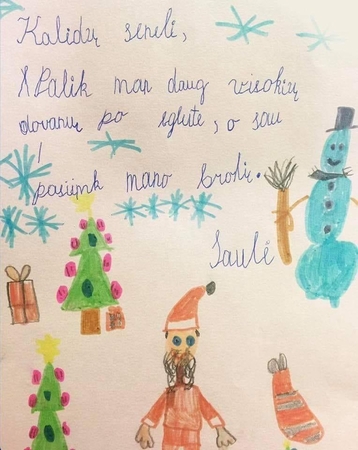 Kalidzų seneli,
Palik man daug visokių
dovanų po eglute, o sau
pasiimk mano brolį.
Saulė